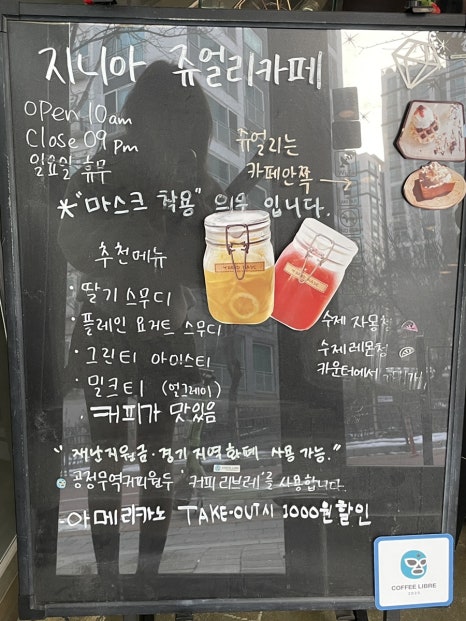 지니아 쥬얼리카페
OPen 10am
Close 09 pm
일요일 휴무
쥬얼리는
카페안쪽 →
* "마스크 착용" 의무 입니다.
추천메뉴
· 딸기 스무디
· 플레인 요거트 스무디
· 그린티 아이스티
· 밀크티 (얼그레이)
· 커피가 맛있음
수제 자몽청
수제 레몬청
카운터에서
"재난지원금·경기 지역화폐 사용 가능."
공정무역커피원두 '커피 리브레'를 사용합니다.
아메리카노 TAKE-OUT시 1000원 할인
COFFEE LIBRE